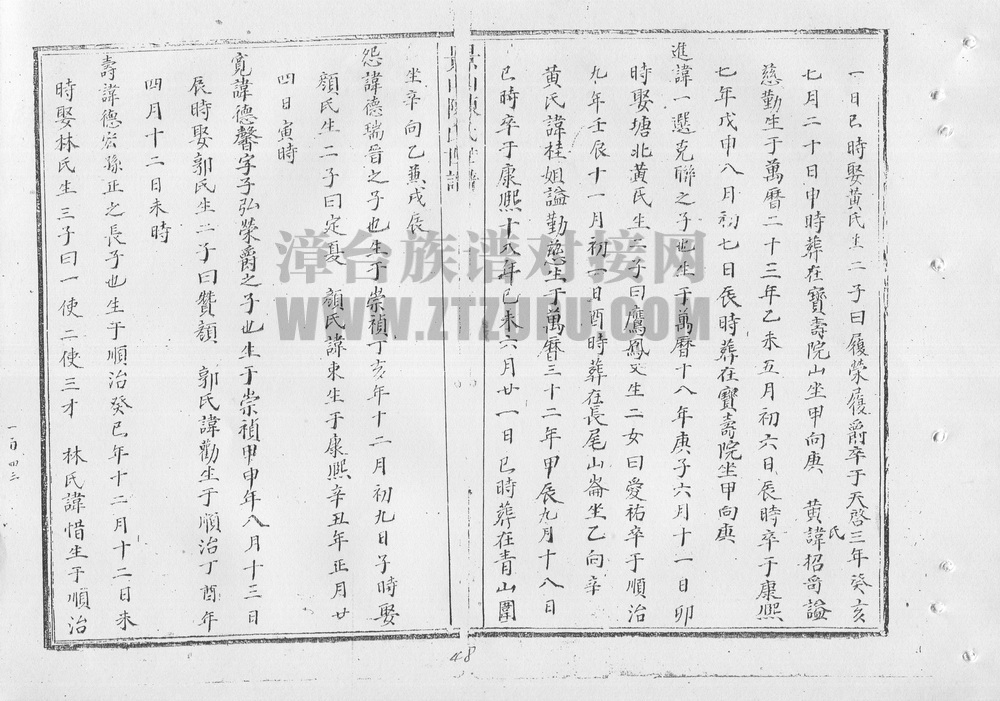 一日巳時娶黃氏生二子曰履榮履爵卒于天啓三年癸亥
七月二十日申時葬在寶壽院山坐甲向庚 黃氏諱招謚
慈勤生于萬曆二十三年乙未五月初六日辰時卒于康熙
七年戊申八月初七日辰時葬在寶壽院坐甲向庚
進諱一選克聯之子也生于萬曆十八年庚子六月十一日卯
時娶塘北黃氏生二子曰鷹鳳又生二女曰愛祐卒于順治
九年壬辰十一月初一日酉時葬在長尾山崙坐乙向辛
黃氏諱桂姐謚勤慈生于萬曆三十二年甲辰九月十八日
巳時卒于康熙十八年己未六月廿一日巳時葬在青山圍
坐辛向乙兼戌辰
怨諱德瑞晉之子也生于崇禎丁亥年十二月初九日子時娶
顏氏生二子曰定夏 顏氏諱東生于康熙辛丑年正月廿
四日寅時
寬諱德馨字子弘榮爵之子也生于崇禎甲申年八月十三日
辰時娶郭氏生二子曰贊顏 郭氏諱勸生于順治丁酉年
四月十二日未時
壽諱德宏孫正之長子也生于順治癸巳年十二月十二日未
時娶林氏生三子曰一使二使三才 林氏諱惜生于順治
一百四三
48
漳台族谱对接网
WWW.ZTZUPU.COM